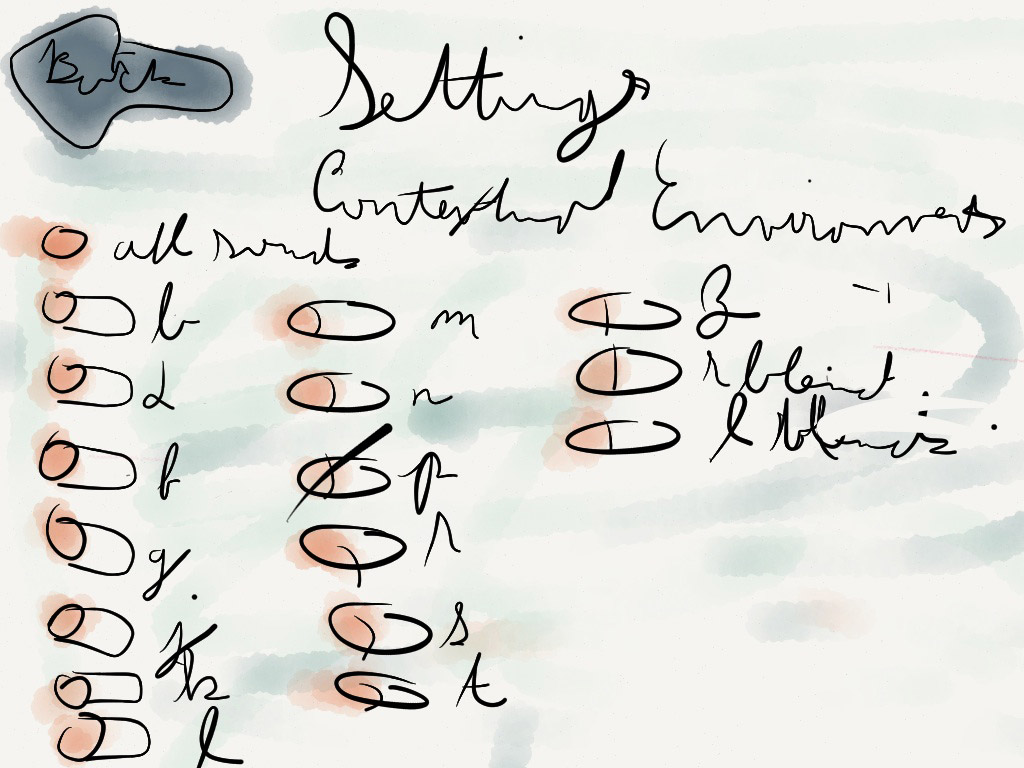 Back
Settings
Contextual Environments
all sounds
b
d
f
g
j
k
l
m
n
p
r
s
t
z
r blend
l blends